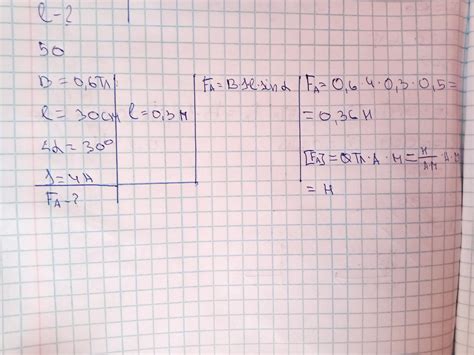 ℓ-?
50
B = 0,6Тл
ℓ = 30см
∠α = 30°
I = 4А
Fₐ-?
ℓ = 0,3м
Fₐ = BIℓ sinα
Fₐ = 0,6 4·0,3·0,5=
= 0,36Н
[Fₐ] = Тл·А·м = Н/А·м А·м
= Н